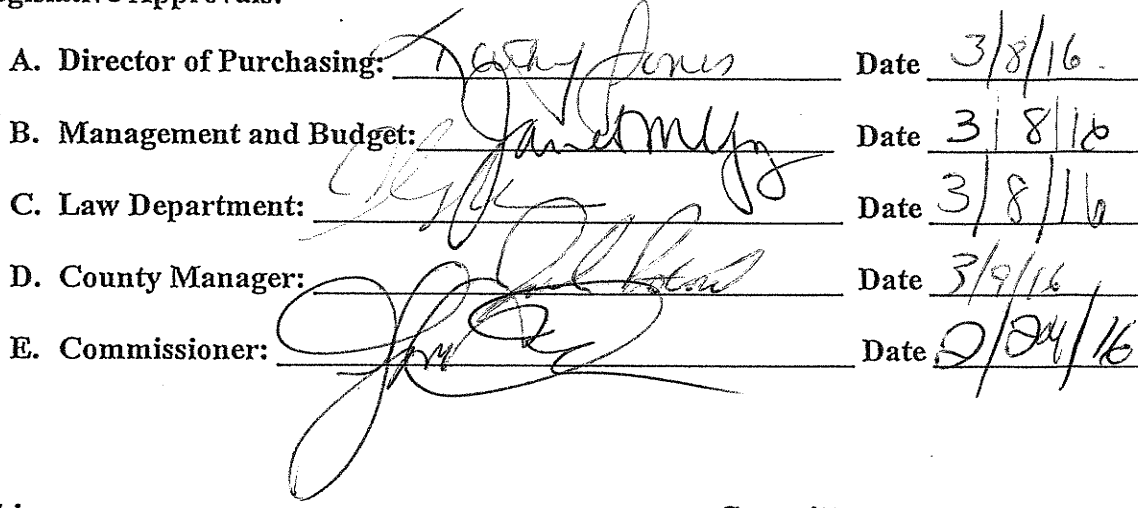 Approvals:
A. Director of Purchasing: Kathy Jones Date 3/8/16.
B. Management and Budget: Date 3/8/16
C. Law Department: Date 3/8/16
D. County Manager: Date 3/9/16
E. Commissioner: Date 2/24/16